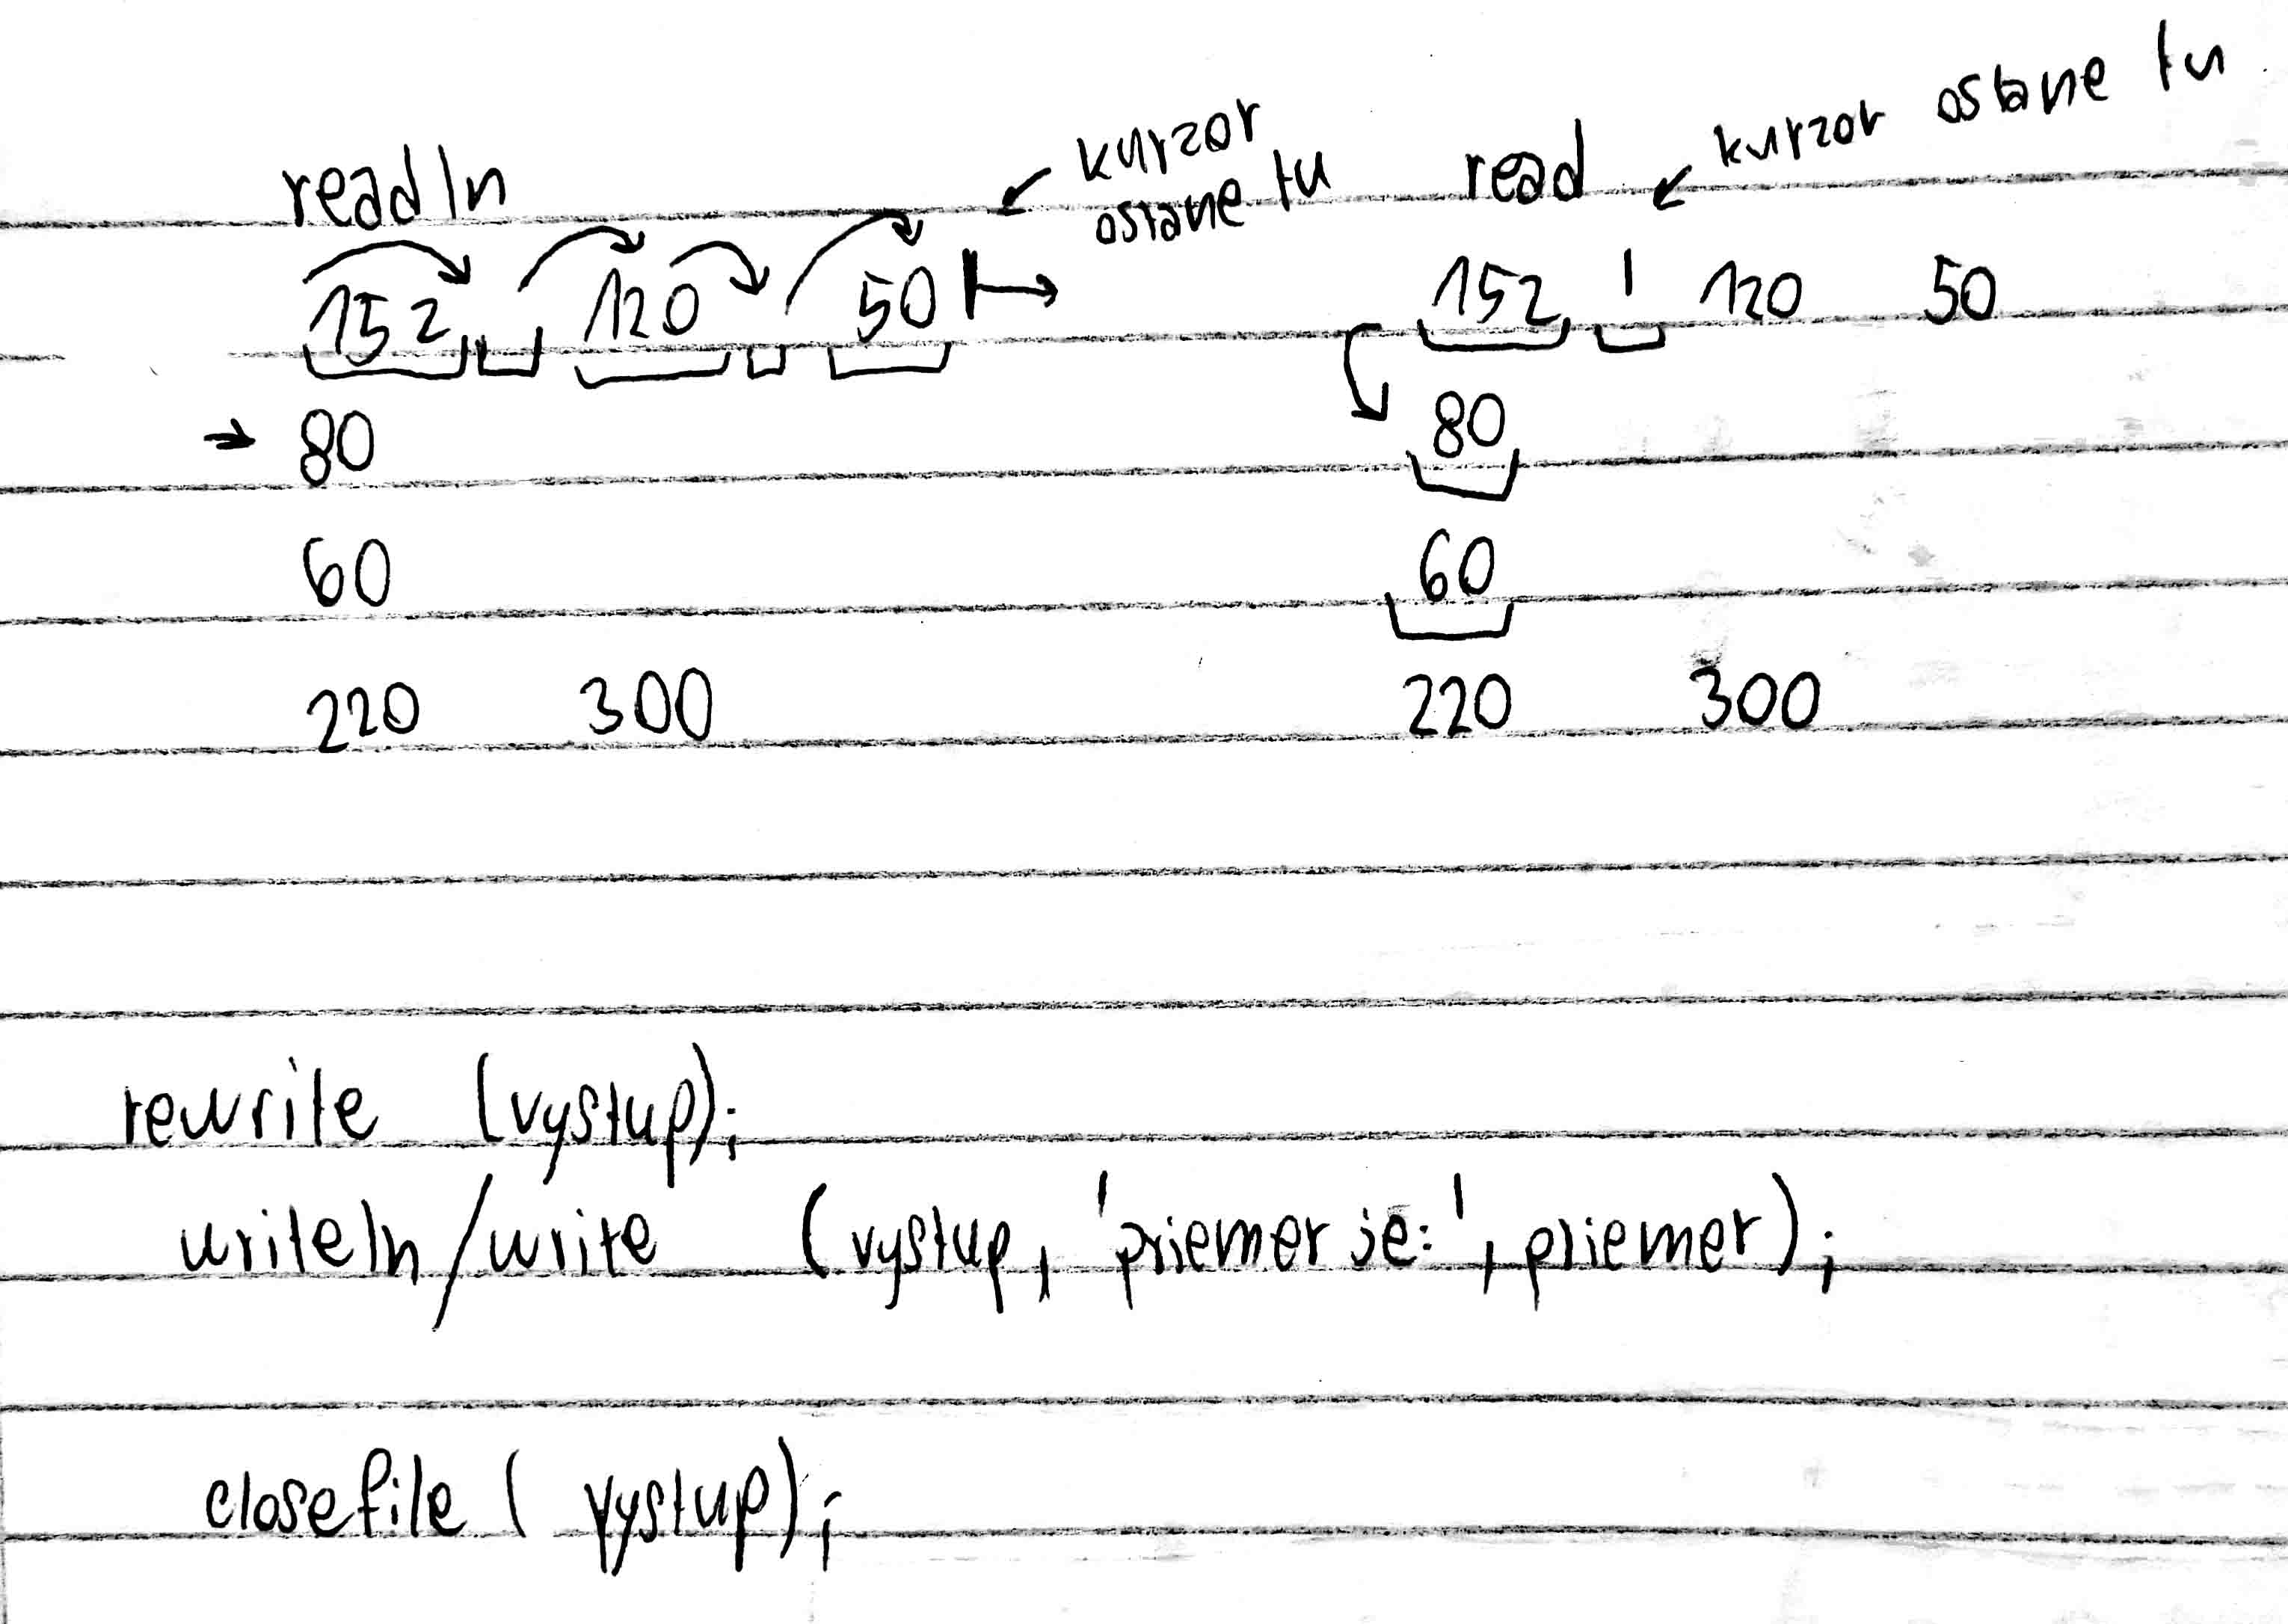 readln
kurzor
ostane tu
152 120 50
80
60
220 300
read
kurzor ostane tu
152 120 50
80
60
220 300
rewrite (vystup);
writeln/write (vystup, 'priemer je:', priemer);
closefile (vystup);